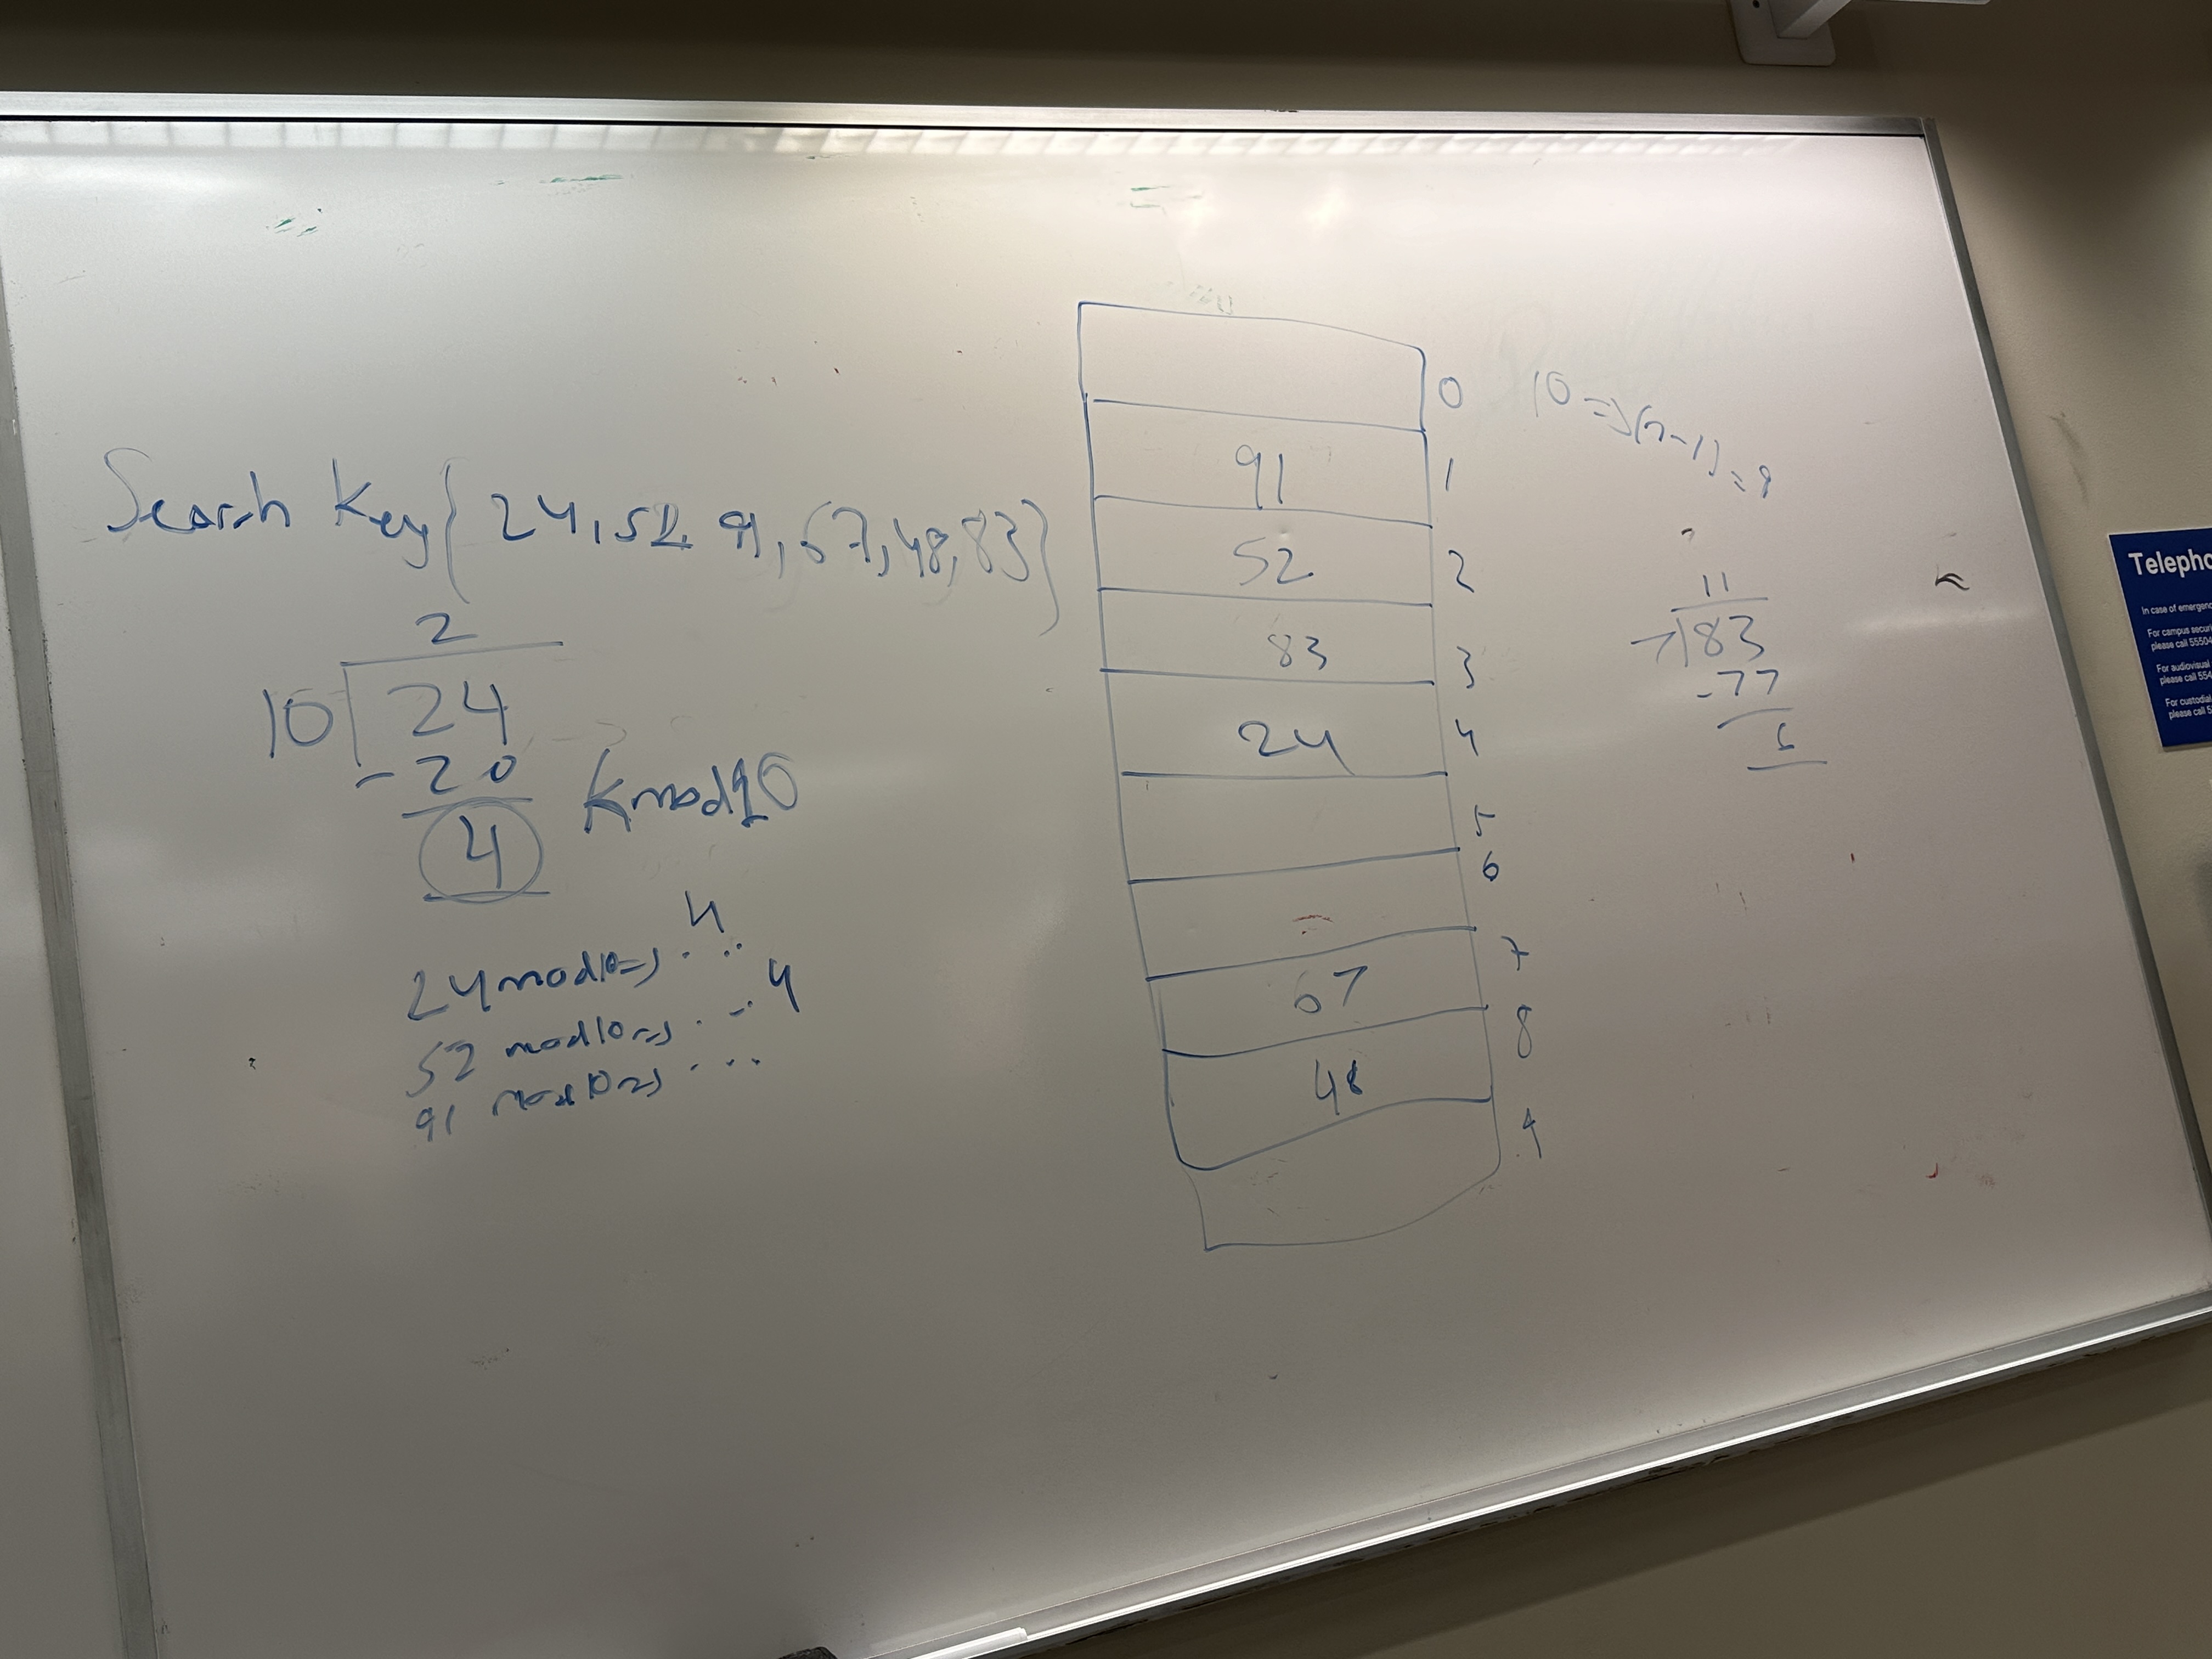 Search Key{ 24, 52, 91, 67, 48, 83}
2
10 24
- 20
4
K mod 10
24 mod 10 => . . . 4
52 mod 10 => . . . 4
91 mod 10 => . . .
0
91 1
52 2
83 3
24 4
5
6
7
67 8
48 9
10 => (n-1) = 9
11
7 83
- 77
6
Telepho
In case of emergenc
For campus securi
please call 55504
For audiovisual
please call 554
For custodial
please call 5